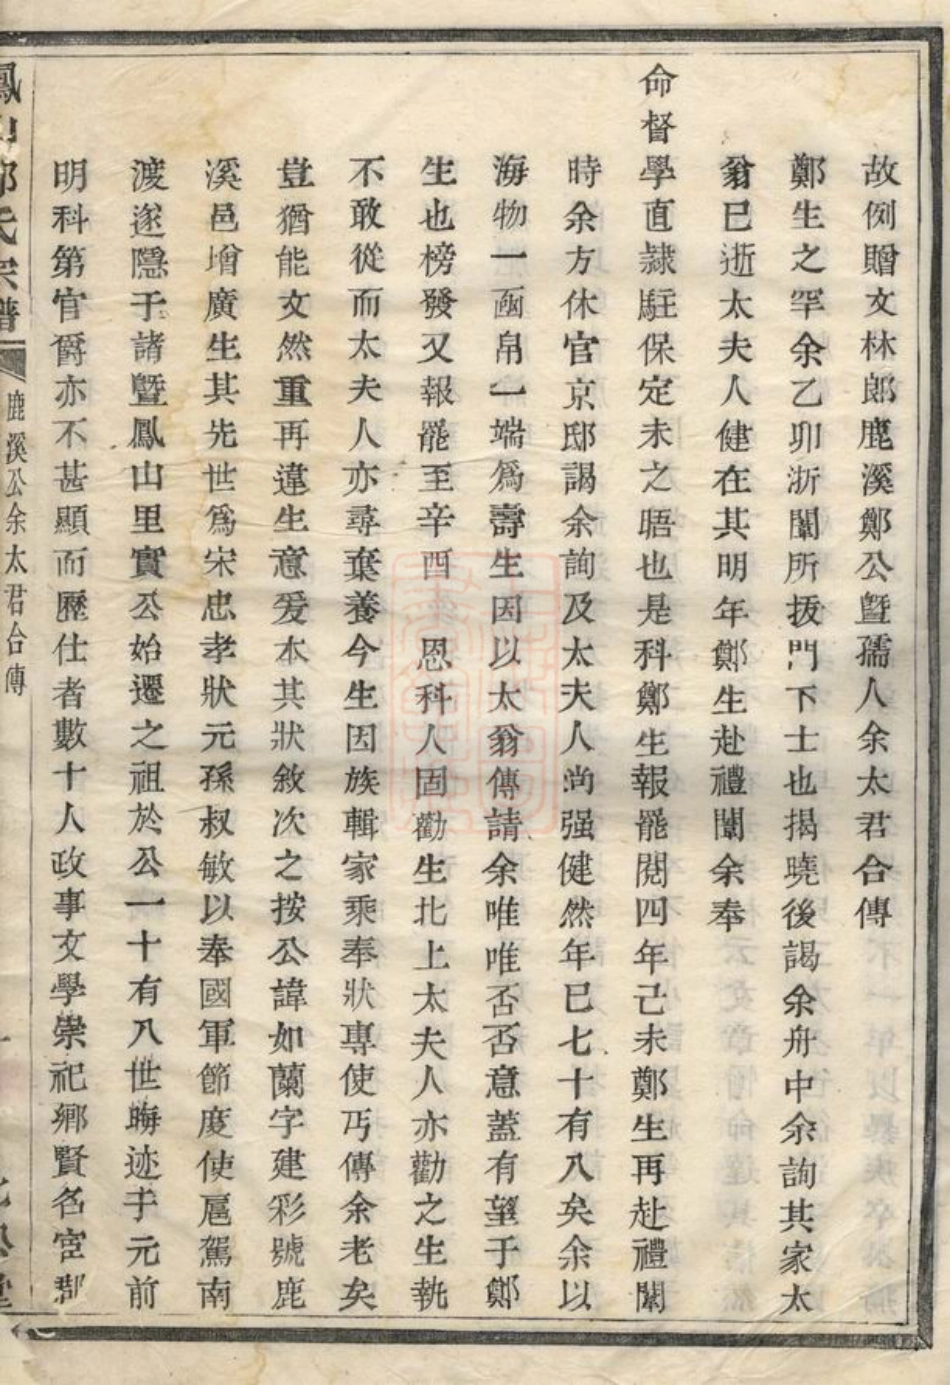 故例贈文林郎鹿溪鄭公曁孺人余太君合傳
鄭生之罕余乙卯浙闈所拔門下士也揭曉後謁余舟中余詢其家太
翁巳逝太夫人健在其明年鄭生赴禮闈余奉
命督學直隸駐保定未之晤也是科鄭生報罷閱四年己未鄭生再赴禮闈
時余方休官京邸謁余詢及太夫人尚强健然年巳七十有八矣余以
海物一函帛一端爲壽生因以太翁傳請余唯唯否否意蓋有望于鄭
生也榜發又報罷至辛酉 恩科人固勸生北上太夫人亦勸之生執
不敢從而太夫人亦尋棄養今生因族輯家乘奉狀專使丐傳余老矣
豈猶能文然重再違生意爰本其狀敘次之按公諱如蘭字建彩號鹿
溪邑增廣生其先世爲宋忠孝狀元孫叔敏以奉國軍節度使扈駕南
渡遂隱于諸曁鳳山里實公始遷之祖於公一十有八世晦迹于元前
明科第官爵亦不甚顯而歷仕者數十人政事文學崇祀鄉賢名宦郡
鳳山鄭氏宗譜
鹿溪公余太君合傳